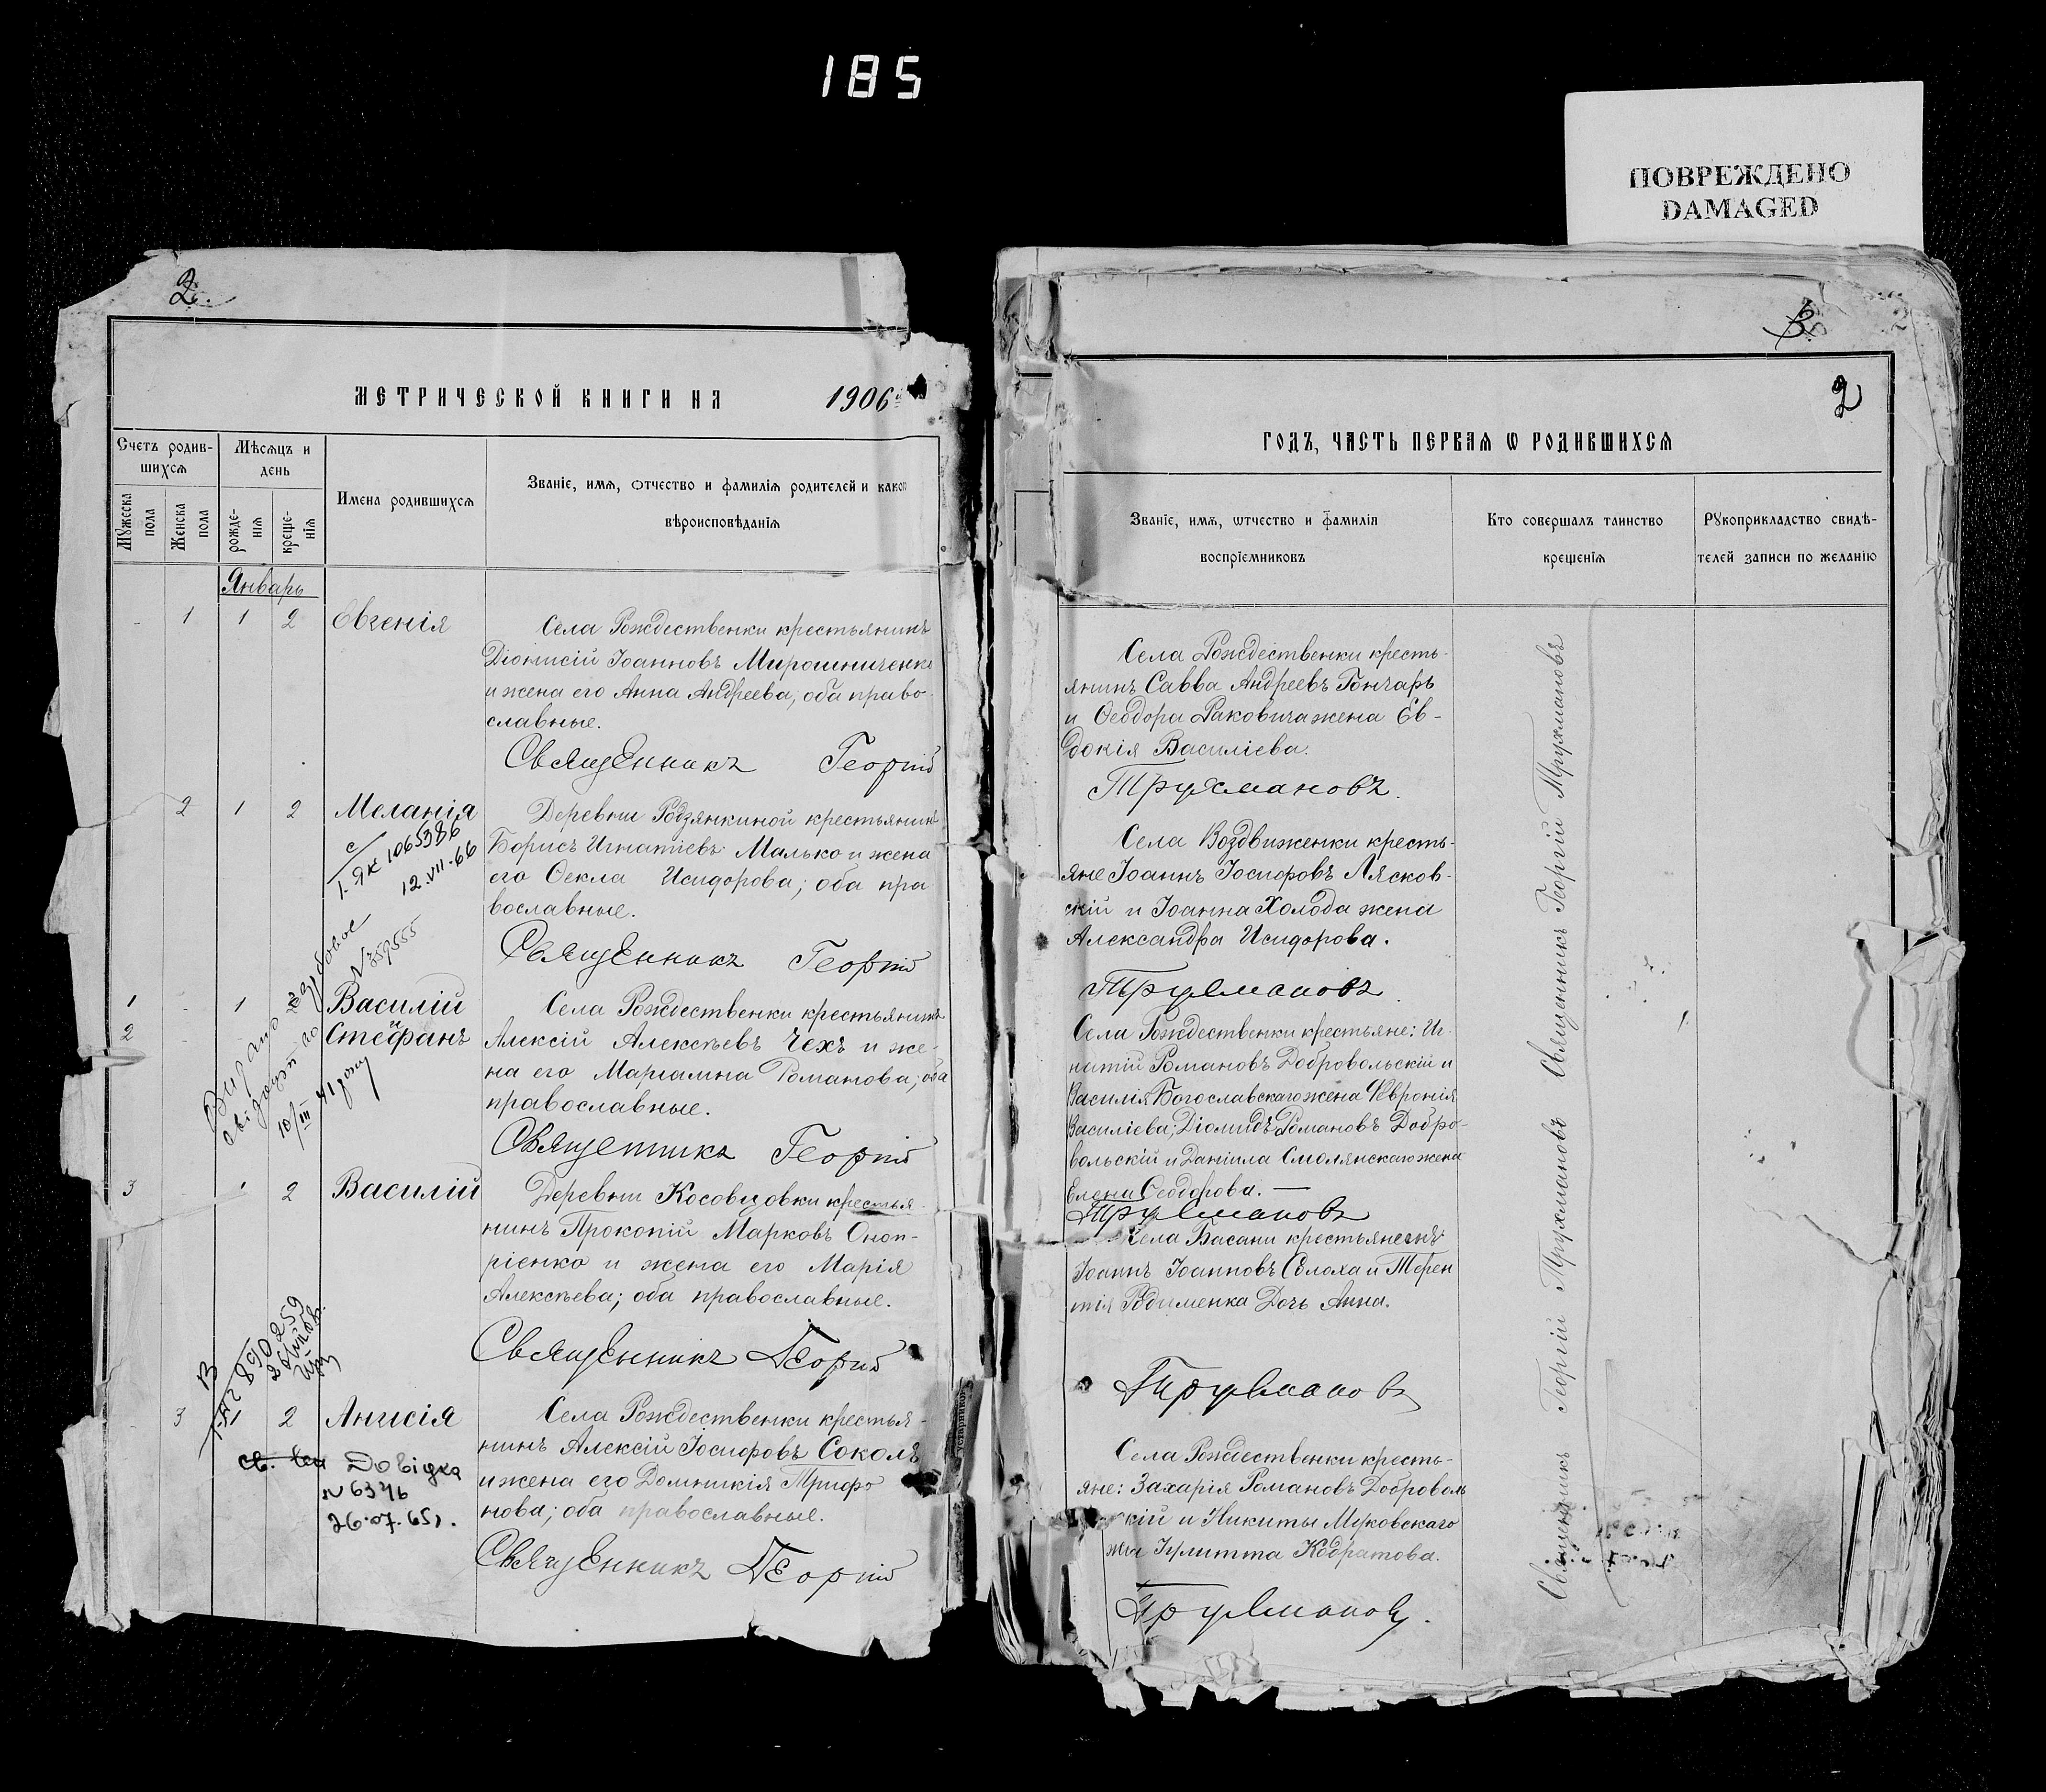 185
ПОВРЕЖДЕНО
DAMAGED
2
МЕТРИЧЕСКОЙ КНИГИ НА 1906
Счетъ родив-
шихся
Мѣсяцъ и
день
Имена родившихся
Званіе, имя, отчество и фамилія родителей и какого
вѣроисповѣданія
Мужеска
пола
Женска
пола
рожде-
нія
креще-
нія
Январь
1 1 2 Евгенія
Села Рождественки крестьянинъ
Діонисій Іоанновъ Мирошниченко
и жена его Анна Андреева; оба право-
славные.
Священникъ Георгій
2 1 2 Меланія
Деревни Родзянкиной крестьянинъ
Борисъ Игнатіевъ Малько и жена
его Ѳекла Исидорова; оба пра
вославные.
Священникъ Георгій
І-ЯК 1065386
12.VII-66
№ 359555
1 1 Василій
2 Стефанъ
Села Рождественки крестьянинъ
Алексій Алексѣевъ Чехъ и же-
на его Маріамна Романова; оба
православные.
Священникъ Георгій
3 1 2 Василій
Деревни Косовцовки крестья-
нинъ Прокопій Марковъ Оноп-
ріенко и жена его Марія
Алексѣева; оба православные.
Священникъ Георгій
3 1 2 Анисія
Села Рождественки крестья-
нинъ Алексій Іосифовъ Соколъ
и жена его Домникія Трифо
нова; оба православные.
Священникъ Георгій
Довідка
№ 6376
26.07.65г.
2
ГОДЪ, ЧАСТЬ ПЕРВАЯ Ѡ РОДИВШИХСЯ
Званіе, имя, ѡтчество и фамилія
воспріемниковъ
Кто совершалъ таинство
крещенія
Рукоприкладство свидѣ-
телей записи по желанію
Села Рождественки кресть-
янинъ Савва Андреевъ Гончаръ
и Ѳеодора Раковича жена Ев-
докія Василіева.
Трухмановъ.
Села Воздвиженки кресть-
яне Іоаннъ Іосифовъ Лясков-
скій и Іоанна Холода жена
Александра Исидорова.
Трухмановъ
Села Рождественки крестьяне: Иг-
натій Романовъ Добровольскій и
Василія Богославскаго жена Февронія
Василіева; Діомидъ Романовъ Добро-
вольскій и Даніила Смолянскаго жена
Елена Ѳеодорова.
Трухмановъ
Села Басани крестьяне
Іоаннъ Іоанновъ Солоха и Терен
тія дочь Анна.
Трухмановъ
Села Рождественки кресть-
яне: Захарія Романовъ Доброволь
скій и Никиты Мурковскаго
жена Іулитта Кодратова.
Трухмановъ.
Священникъ Георгій Трухмановъ
Священникъ Георгій Трухмановъ